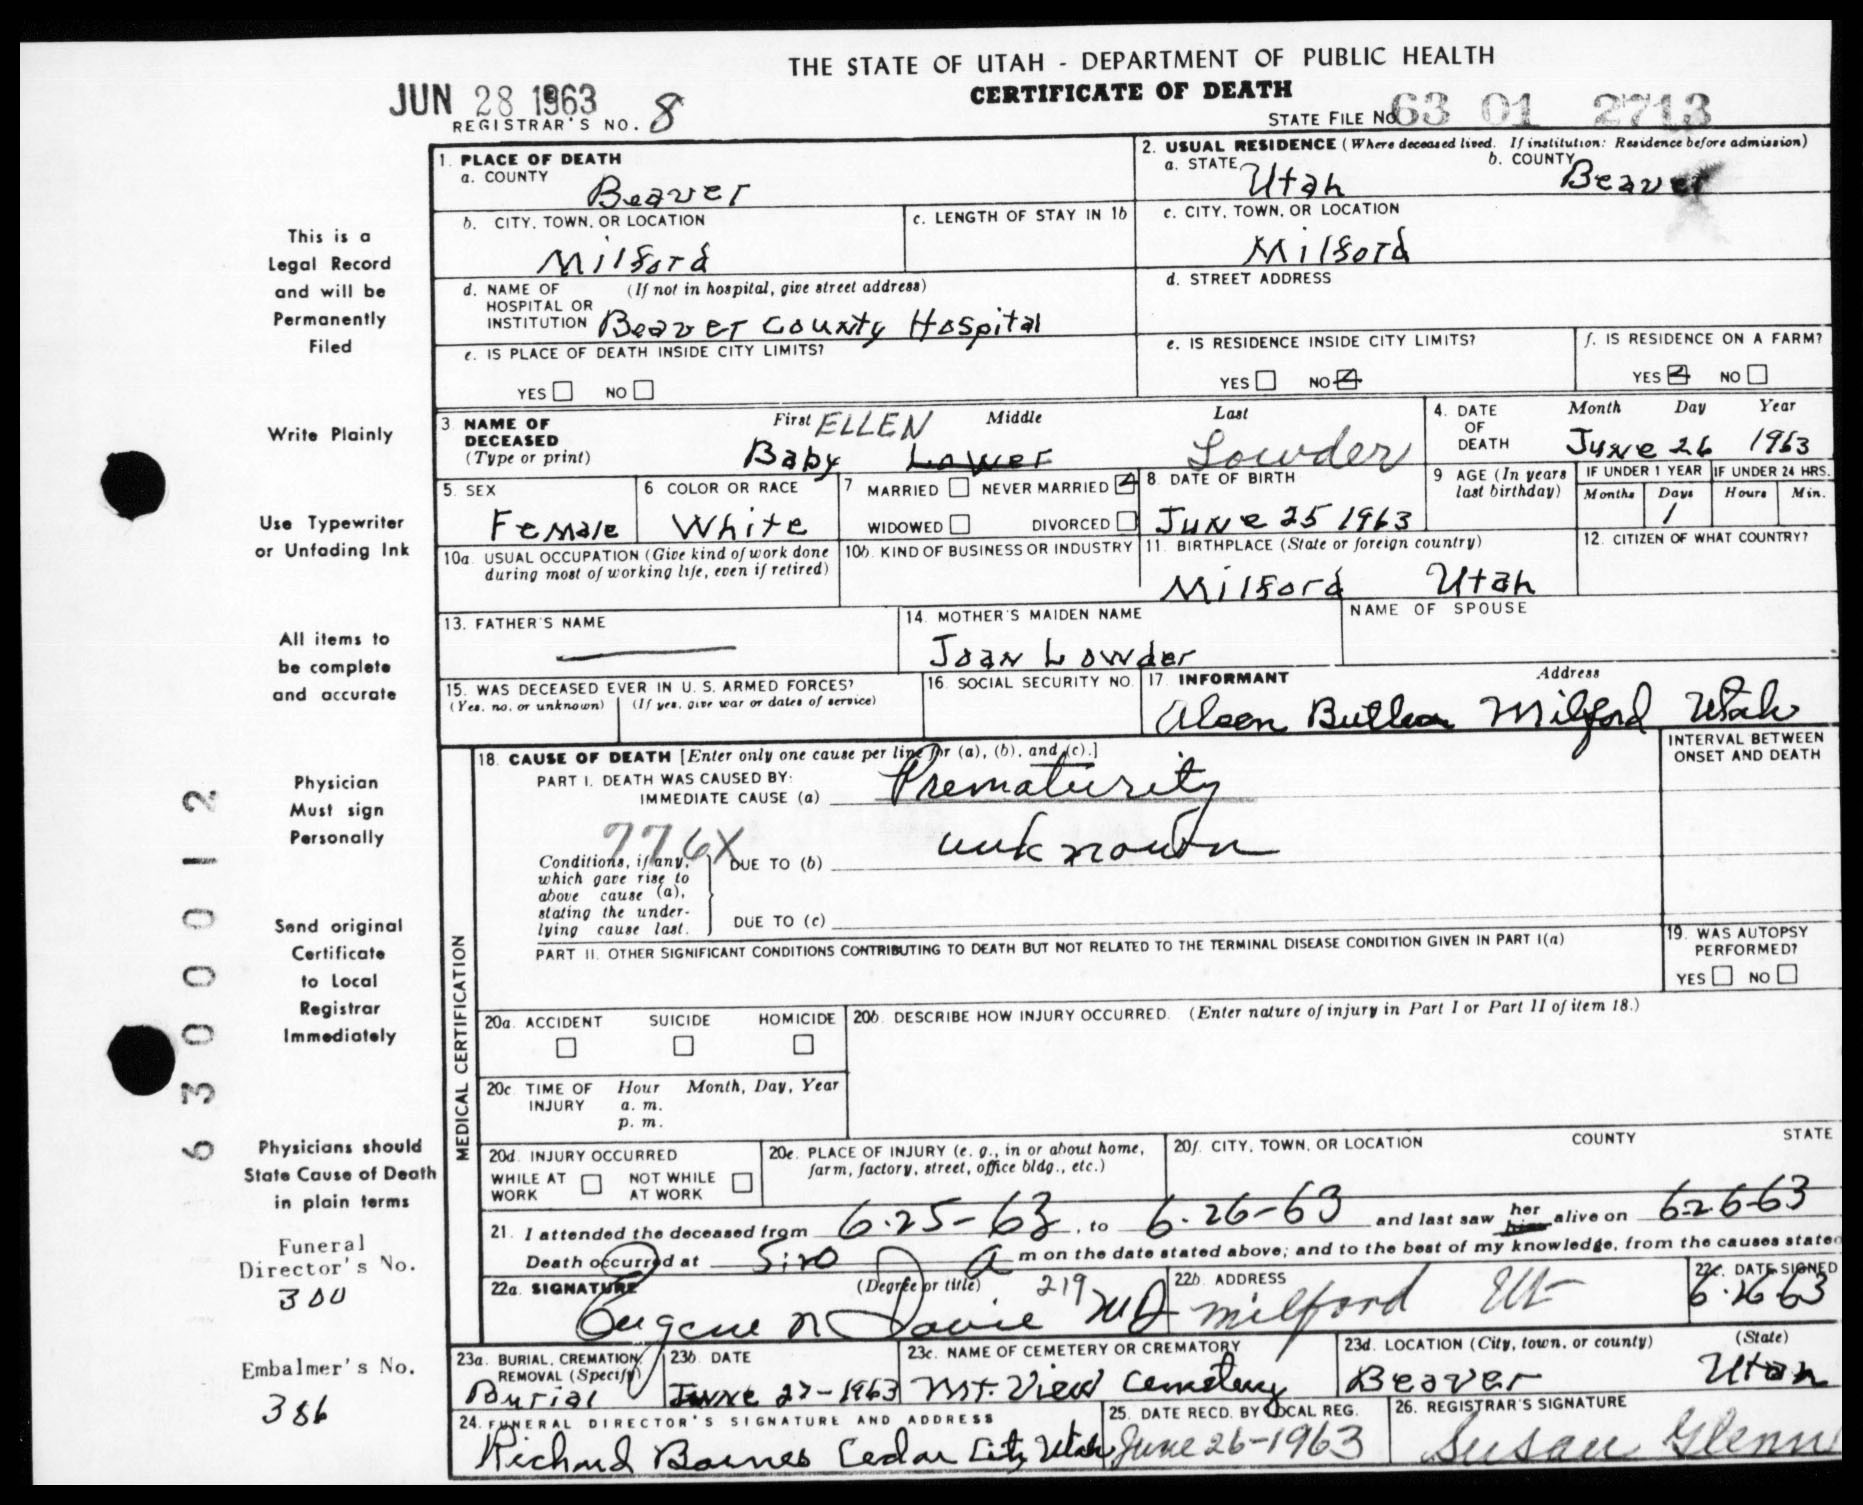 THE STATE OF UTAH - DEPARTMENT OF PUBLIC HEALTH
CERTIFICATE OF DEATH
JUN 28 1963
REGISTRAR'S NO. 8
STATE FILE NO. 63 01 2713
1. PLACE OF DEATH
a. COUNTY
Beaver
2. USUAL RESIDENCE (Where deceased lived. If institution: Residence before admission)
a. STATE Utah b. COUNTY Beaver
b. CITY, TOWN, OR LOCATION
Milford
c. LENGTH OF STAY IN 1b
c. CITY, TOWN, OR LOCATION
Milford
d. NAME OF HOSPITAL OR INSTITUTION (If not in hospital, give street address)
Beaver County Hospital
d. STREET ADDRESS
e. IS PLACE OF DEATH INSIDE CITY LIMITS?
YES NO
e. IS RESIDENCE INSIDE CITY LIMITS?
YES NO
f. IS RESIDENCE ON A FARM?
YES NO
3 NAME OF DECEASED (Type or print)
First ELLEN Middle Last
Baby Lower Lowder
4. DATE OF DEATH Month Day Year
June 26 1963
5. SEX
Female
6 COLOR OR RACE
White
7 MARRIED NEVER MARRIED
WIDOWED DIVORCED
8. DATE OF BIRTH
June 25 1963
9 AGE (In years last birthday)
IF UNDER 1 YEAR IF UNDER 24 HRS.
Months Days Hours Min.
1
10a. USUAL OCCUPATION (Give kind of work done during most of working life, even if retired)
10b. KIND OF BUSINESS OR INDUSTRY
11. BIRTHPLACE (State or foreign country)
Milford Utah
12. CITIZEN OF WHAT COUNTRY?
13. FATHER'S NAME
14. MOTHER'S MAIDEN NAME
Joan Lowder
NAME OF SPOUSE
15. WAS DECEASED EVER IN U. S. ARMED FORCES?
(Yes, no, or unknown) (If yes, give war or dates of service)
16. SOCIAL SECURITY NO.
17. INFORMANT Address
Milford Utah
18. CAUSE OF DEATH [Enter only one cause per line for (a), (b), and (c).]
INTERVAL BETWEEN ONSET AND DEATH
PART I. DEATH WAS CAUSED BY:
IMMEDIATE CAUSE (a) Prematurity
776X
Conditions, if any, which gave rise to above cause (a), stating the underlying cause last.
DUE TO (b) unknown
DUE TO (c)
PART II. OTHER SIGNIFICANT CONDITIONS CONTRIBUTING TO DEATH BUT NOT RELATED TO THE TERMINAL DISEASE CONDITION GIVEN IN PART I(a)
19. WAS AUTOPSY PERFORMED?
YES NO
MEDICAL CERTIFICATION
20a. ACCIDENT SUICIDE HOMICIDE
20b. DESCRIBE HOW INJURY OCCURRED. (Enter nature of injury in Part I or Part II of item 18.)
20c. TIME OF INJURY Hour Month, Day, Year
a. m.
p. m.
20d. INJURY OCCURRED
WHILE AT WORK NOT WHILE AT WORK
20e. PLACE OF INJURY (e. g., in or about home, farm, factory, street, office bldg., etc.)
20f. CITY, TOWN, OR LOCATION COUNTY STATE
21. I attended the deceased from 6-25-63, to 6-26-63 and last saw her him alive on 6-26-63
Death occurred at a m on the date stated above; and to the best of my knowledge, from the causes stated
22a. SIGNATURE (Degree or title)
Eugene N Davie 219 MD
22b. ADDRESS
Milford Ut
22c. DATE SIGNED
6-26-63
23a. BURIAL, CREMATION, REMOVAL (Specify)
Burial
23b. DATE
June 27-1963
23c. NAME OF CEMETERY OR CREMATORY
Mt. View Cemetery
23d. LOCATION (City, town, or county) (State)
Beaver Utah
24. FUNERAL DIRECTOR'S SIGNATURE AND ADDRESS
Richard Barnes Cedar City Utah
25. DATE RECD. BY LOCAL REG.
June 26-1963
26. REGISTRAR'S SIGNATURE
Susan Glenn
This is a
Legal Record
and will be
Permanently
Filed
Write Plainly
Use Typewriter
or Unfading Ink
All items to
be complete
and accurate
Physician
Must sign
Personally
Send original
Certificate
to Local
Registrar
Immediately
Physicians should
State Cause of Death
in plain terms
Funeral
Director's No.
300
Embalmer's No.
386
6300012